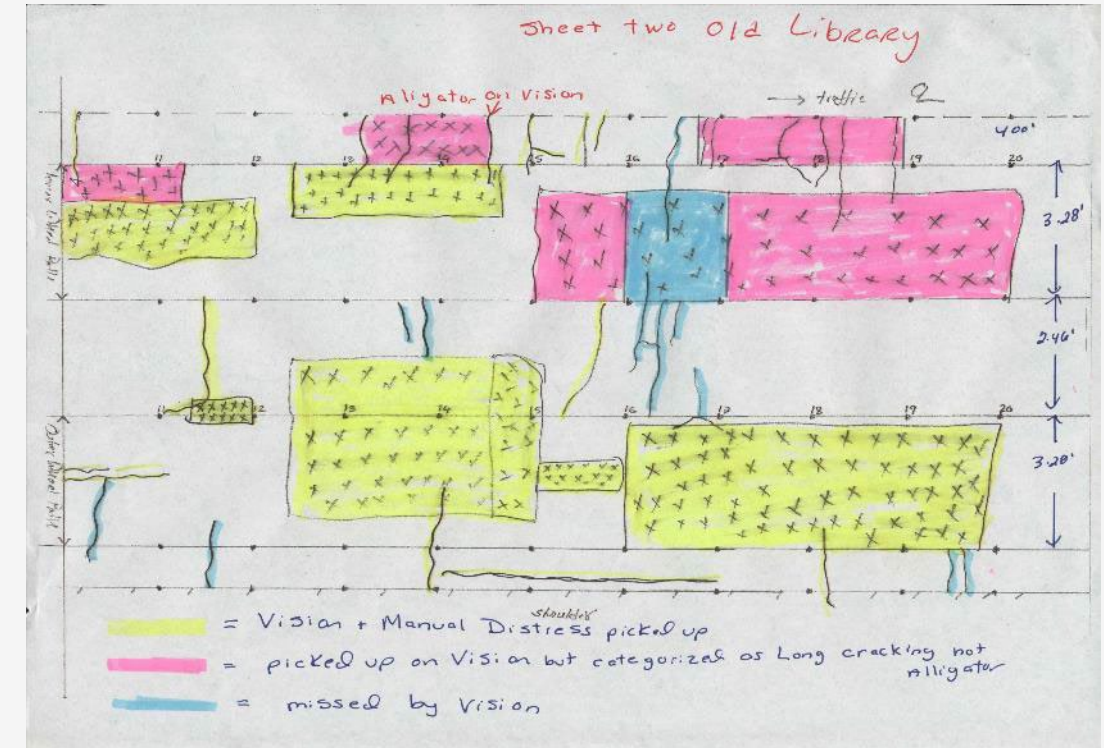 Sheet two Old Library
Aligator on Vision
→ traffic 2
4.00'
11 12 13 14 15 16 17 18 19 20
3.28'
2.46'
11 12 13 14 15 16 17 18 19 20
3.28'
shoulder
= Vision + Manual Distress picked up
= picked up on Vision but categorized as Long cracking not
Alligator
= missed by Vision